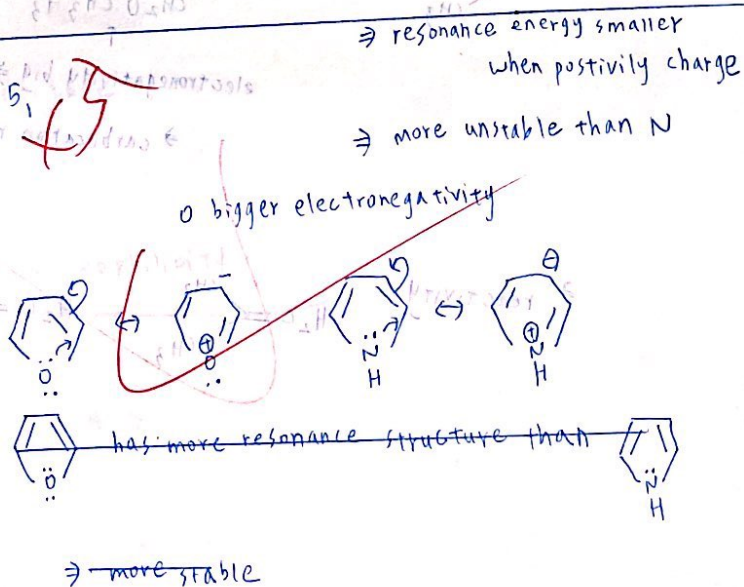 ⇒ resonance energy smaller
when postivily charge
5,
+5
⇒ more unstable than N
O bigger electronegativity
O ↔ ⊕ O - N H ↔ ⊖ ⊕ N H
O has more resonance structure than N H
⇒ more stable